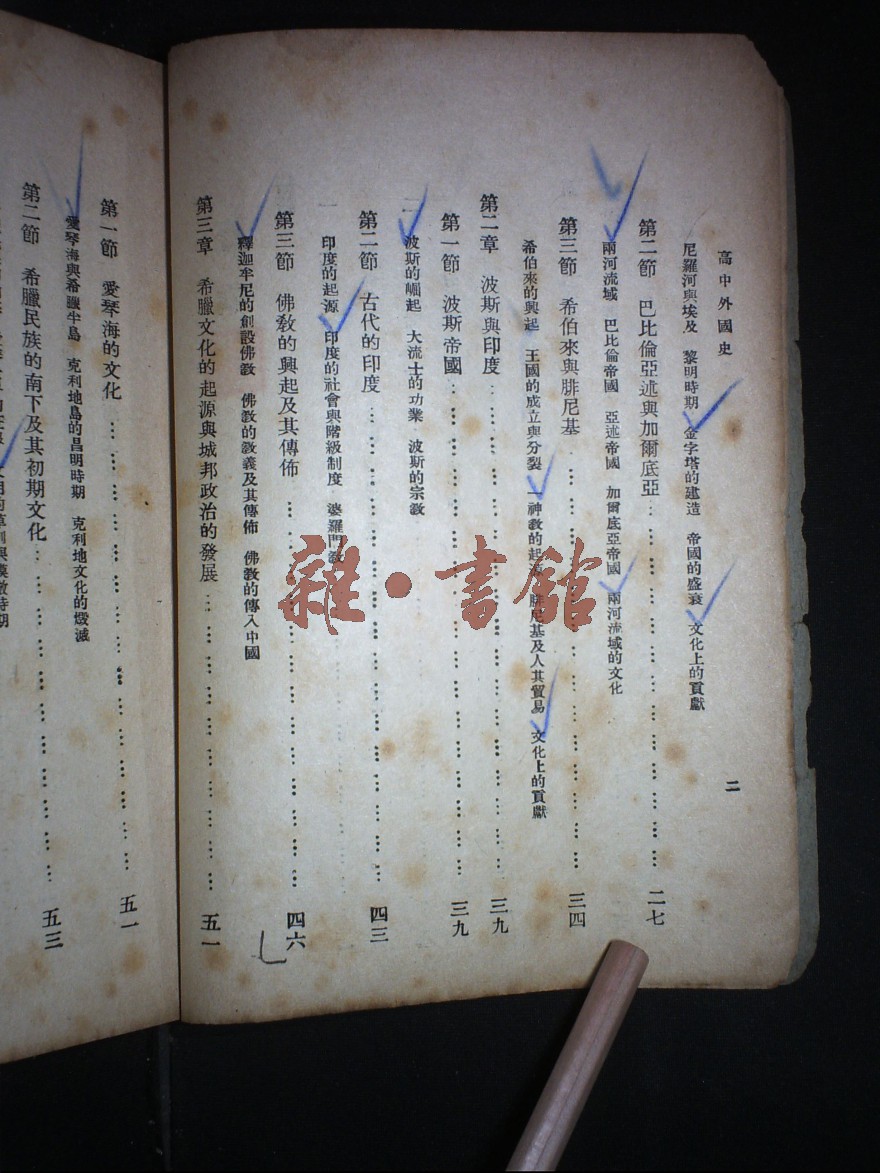 高中外國史
尼羅河與埃及 黎明時期 金字塔的建造 帝國的盛衰 文化上的貢獻
第二節 巴比倫亞述與加爾底亞 二七
兩河流域 巴比倫帝國 亞述帝國 加爾底亞帝國 兩河流域的文化
第三節 希伯來與腓尼基 三四
希伯來的興起 王國的成立與分裂 一神教的起源 腓尼基及人其貿易 文化上的貢獻
第二章 波斯與印度 三九
第一節 波斯帝國 三九
波斯的崛起 大流士的功業 波斯的宗教
第二節 古代的印度 四三
印度的起源 印度的社會與階級制度 婆羅門教
第三節 佛教的興起及其傳佈 四六
釋迦牟尼的創設佛教 佛教的教義及其傳佈 佛教的傳入中國
第三章 希臘文化的起源與城邦政治的發展 五一
二
第一節 愛琴海的文化 五一
愛琴海與希臘半島 克利地島的昌明時期 克利地文化的燬滅
第二節 希臘民族的南下及其初期文化 五三
雜·書館